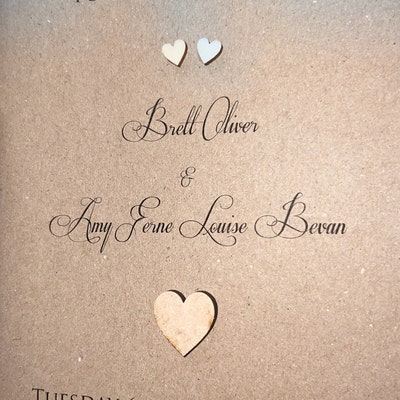 Brett Oliver
&
Amy Ferne Louise Bevan
Tuesday